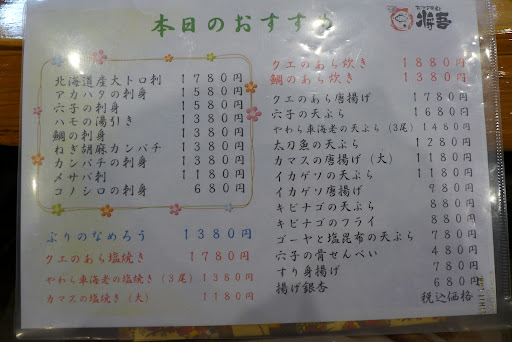 本日のおすすめ
将吾
北海道産大トロ刺 1780円
アカハタの刺身 1580円
穴子の刺身 1580円
ハモの湯引き 1380円
鯛の刺身 1380円
ねぎ胡麻カンパチ 1380円
カンパチの刺身 1380円
メサバ刺 1180円
コノシロの刺身 680円
ぶりのなめろう 1380円
クエのあら塩焼き 1780円
やわら車海老の塩焼き(3尾) 1380円
カマスの塩焼き(大) 1180円
クエのあら炊き 1880円
鯛のあら炊き 1380円
クエのあら唐揚げ 1780円
穴子の天ぷら 1680円
やわら車海老の天ぷら(3尾) 1480円
太刀魚の天ぷら 1280円
カマスの唐揚げ(大) 1180円
イカゲソの天ぷら 1180円
イカゲソ唐揚げ 980円
キビナゴの天ぷら 880円
キビナゴのフライ 880円
ゴーヤと塩昆布の天ぷら 780円
穴子の骨せんべい 480円
すり身揚げ 780円
揚げ銀杏 680円
税込価格